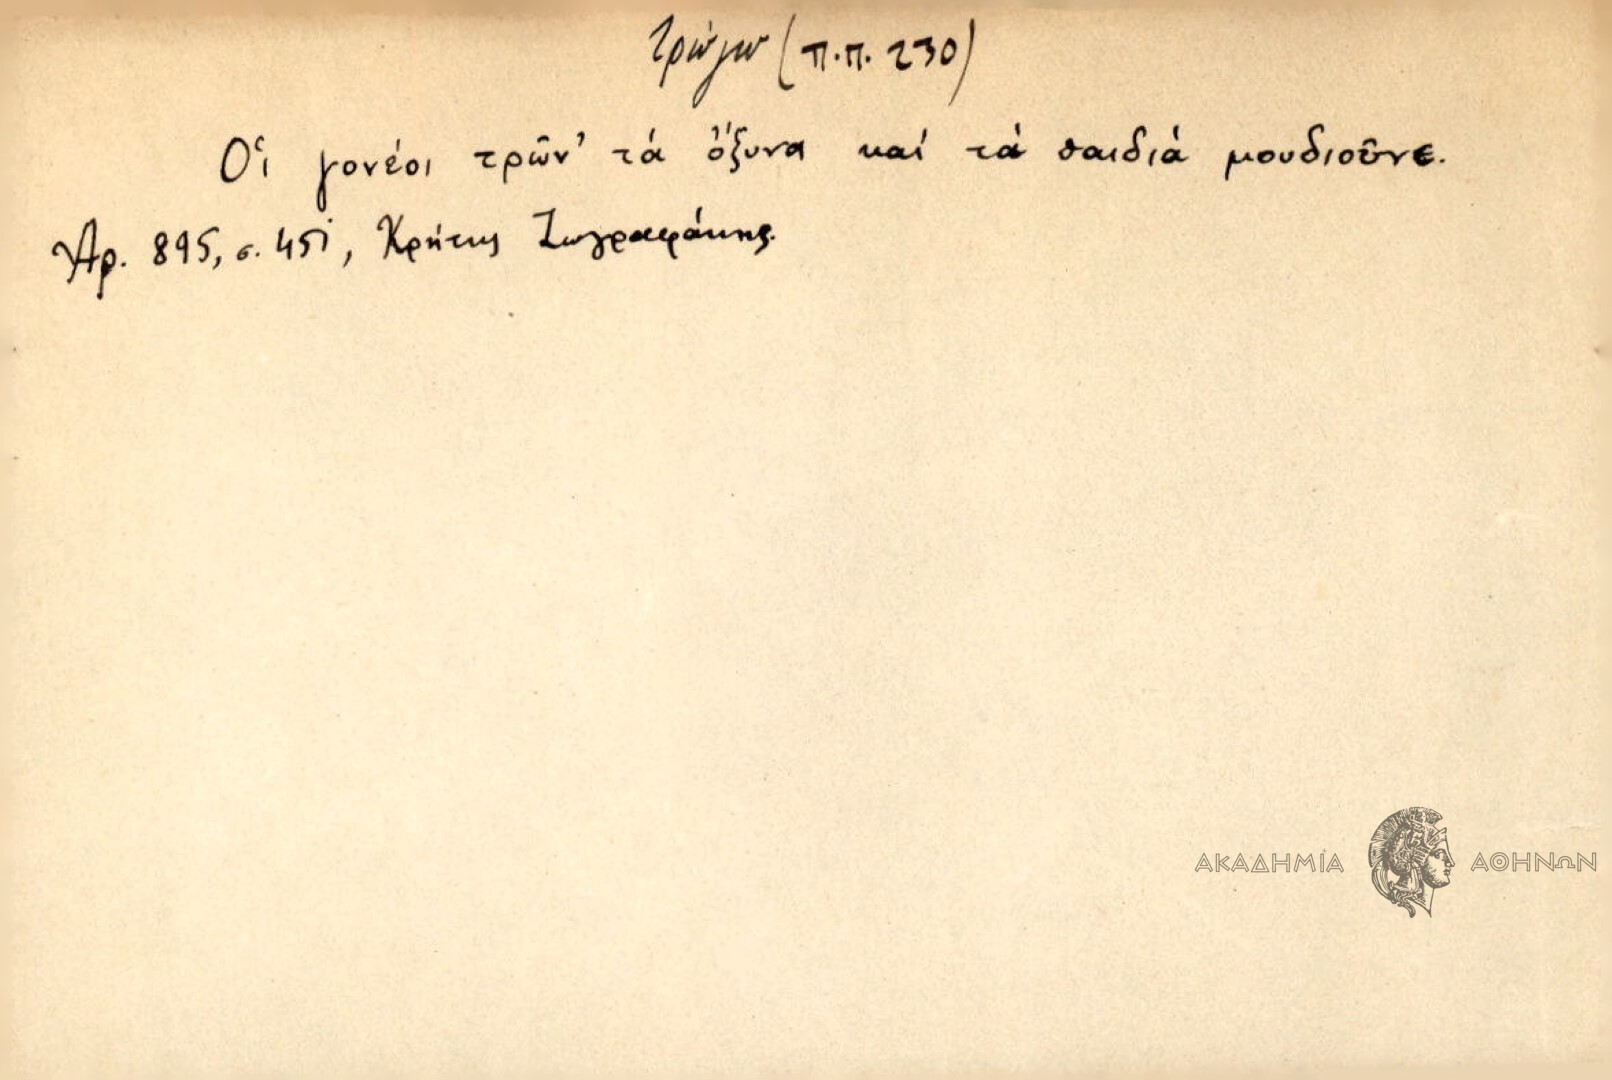 τρώγω (π.π. 230)
Οἱ γονέοι τρῶν' τά ὄξυνα καί τά παιδιά μουδιοῦνε.
Ἀρ. 895, σ. 45i, Κρήτης Ζωγραφάκης.
ΑΚΑΔΗΜΙΑ ΑΘΗΝΩΝ